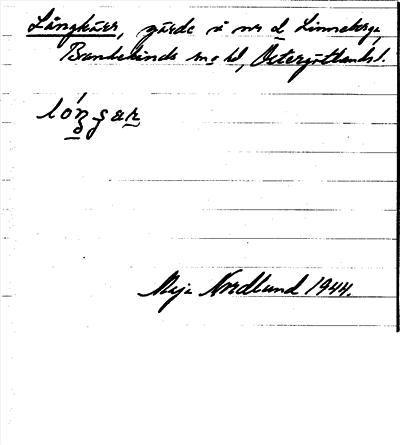 Långkärr, gärde å nr 2 Linneberga,
Bankekinds sn o hd, Östergötlands l.
lóŋgar
Maja Nordlund 1944.